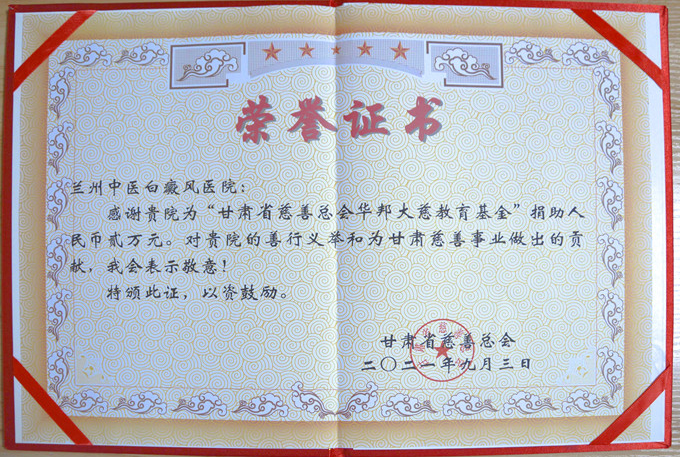 荣誉证书
兰州中医白癜风医院：
感谢贵院为“甘肃省慈善总会华邦大慈教育基金”捐助人
民币贰万元。对贵院的善行义举和为甘肃慈善事业做出的贡
献，我会表示敬意！
特颁此证，以资鼓励。
甘肃省慈善总会
二〇二一年九月三日